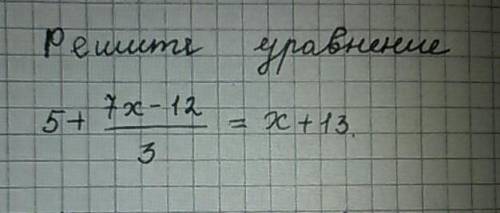 Решите уравнение
5 + (7x - 12)/3 = x + 13.